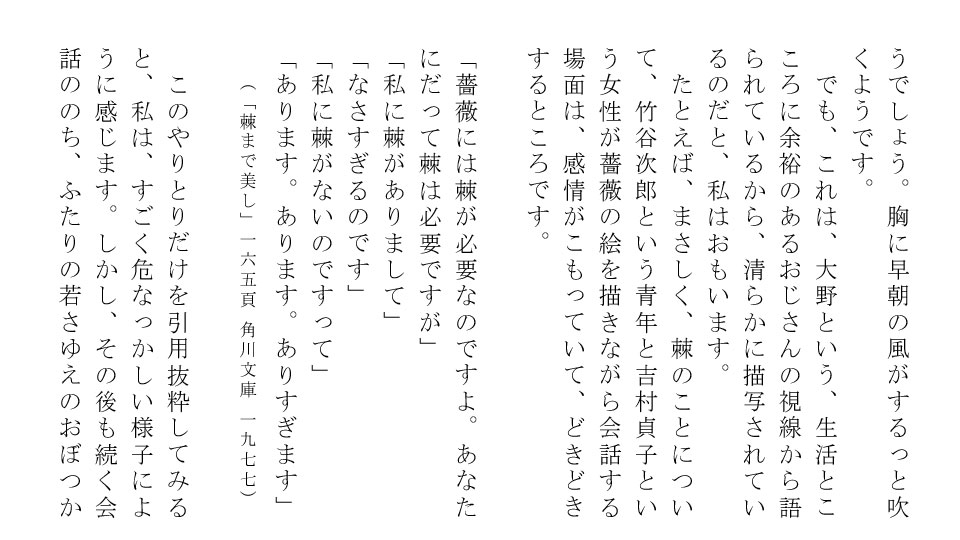 うでしょう。胸に早朝の風がするっと吹
くようです。
でも、これは、大野という、生活とこ
ころに余裕のあるおじさんの視線から語
られているから、清らかに描写されてい
るのだと、私はおもいます。
たとえば、まさしく、棘のことについ
て、竹谷次郎という青年と吉村貞子とい
う女性が薔薇の絵を描きながら会話する
場面は、感情がこもっていて、どきどき
するところです。
「薔薇には棘が必要なのですよ。あなた
にだって棘は必要ですが」
「私に棘がありまして」
「なさすぎるのです」
「私に棘がないのですって」
「あります。あります。ありすぎます」
（「棘まで美し」一六五頁 角川文庫 一九七七）
このやりとりだけを引用抜粋してみる
と、私は、すごく危なっかしい様子によ
うに感じます。しかし、その後も続く会
話ののち、ふたりの若さゆえのおぼつか